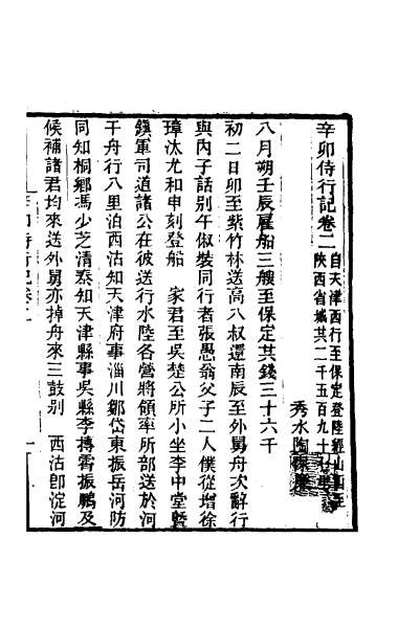 辛卯侍行記卷二 自天津西行至保定登陸經山西至
陝西省城共二千五百九十七里
秀水陶保廉
八月朔壬辰雇船三艘至保定共錢三十六千
初二日卯至紫竹林送高八叔還南辰至外舅舟次辭行
與內子話別午俶裝同行者張愚翁父子二人僕從增徐
璋汰尤和申刻登船　家君至吳楚公所小坐李中堂曁
鎭軍司道諸公在彼送行水陸各營將領率所部送於河
干舟行八里泊西沽知天津府事淄川鄒岱東振岳河防
同知桐鄉馮少芝清泰知天津縣事吳縣李摶霄振鵬及
候補諸君均來送外舅亦掉舟來三鼓別　西沽卽淀河